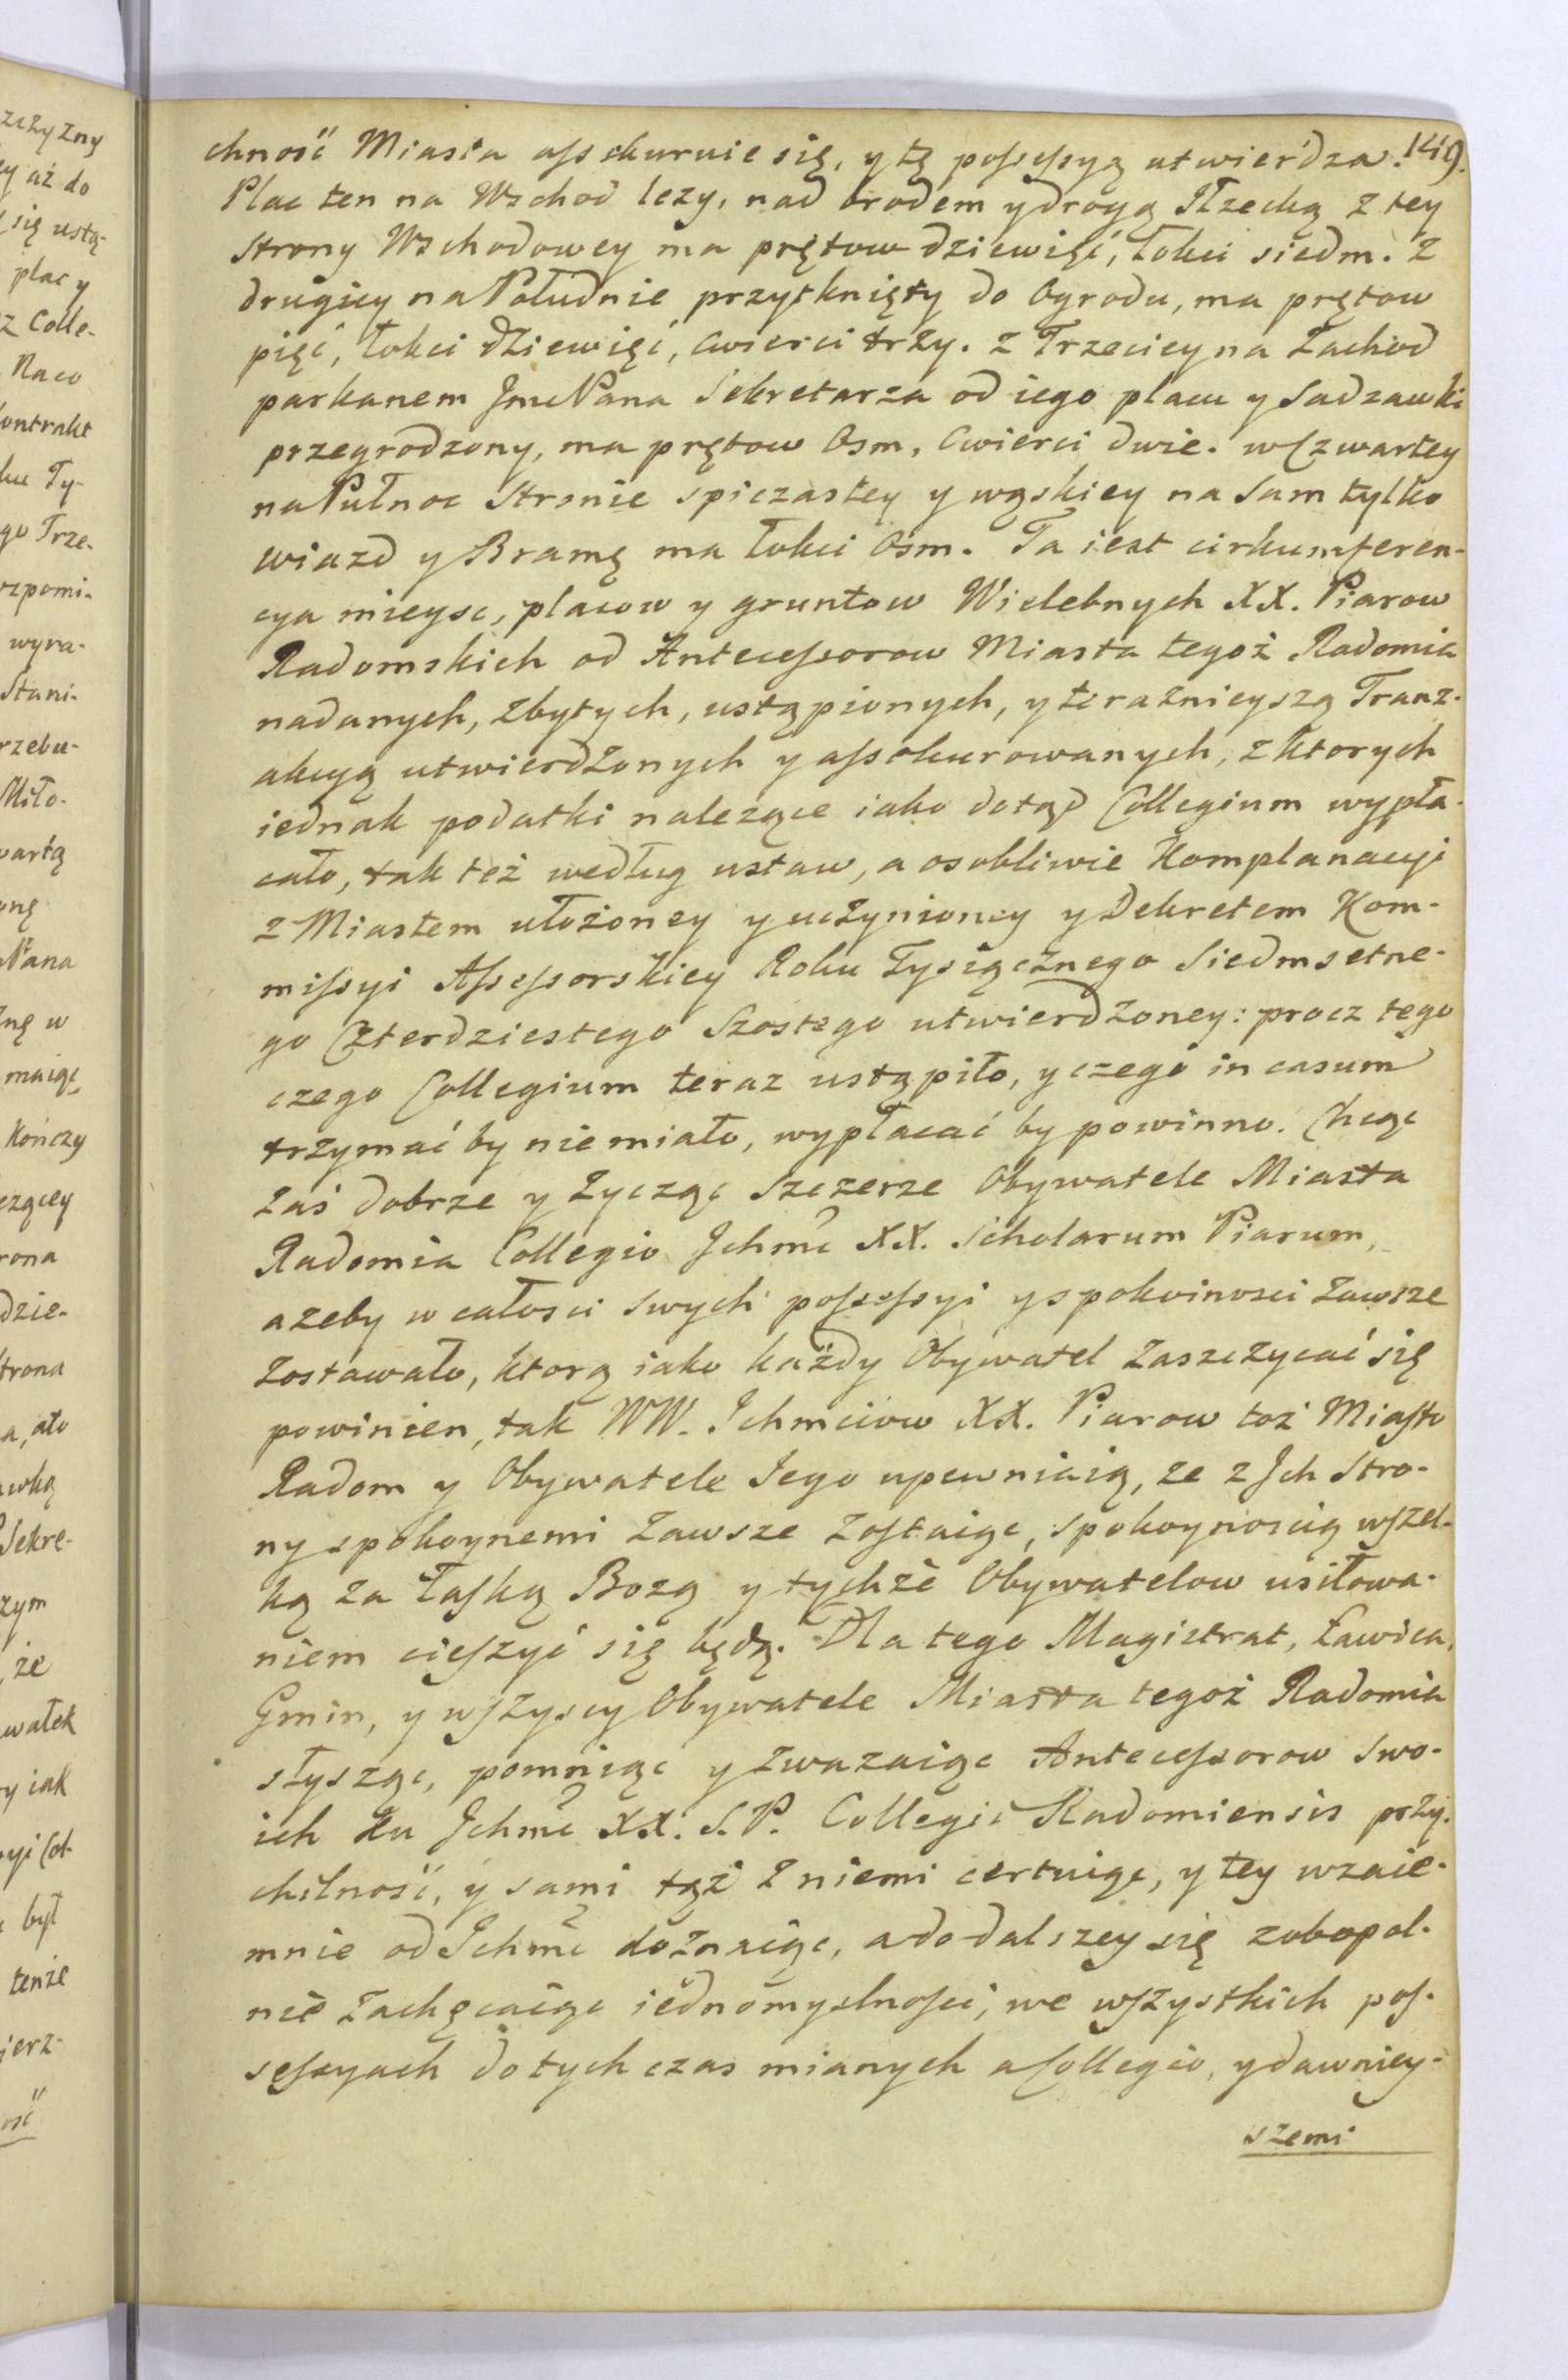 zczyzny
y aż do
się ustą-
plac y
z Colle-
Naco
ontrakt
ku Ty-
go Trze-
wspomi-
wyra-
Stani-
rzebu-
Miło-
wartą
onę
Pana
nę w
maiąc
Kończy
rona
dzie-
trona
a, ato
awką
Sekre-
zym
że
wałek
y iak
yi Col-
był
tenże
ierz-
ość
chność Miasta assekuruie się, y tę possessyą utwierdza. 149.
Plac ten na Wschod lezy, nad brodem y drogą Iłzecką z tey
strony Wschodowey ma prętow dziewięć, łokci siedm. Z
drugiey na Południe przytknięty do Ogrodu, ma prętow
pięć, łokci dziewięć, cwierci trzy. z Trzeciey na Zachod
parkanem Jmć Pana Sekretarza od iego placu y Sadzawki
przegrodzony, ma prętow Osm, Cwierci dwie. w Czwartey
na Pułnoc Stronie spiczastey y wąskiey na Sam tylko
wiazd y Bramę ma łokci Osm. Ta iest cirkumferen-
cya mieysc, placow y gruntow Wielebnych XX. Piarow
Radomskich od Antecessorow Miasta tegoż Radomia
nadanych, zbytych, ustąpionych, y terażnieyszą Tranz-
akcyą utwierdzonych y assekurowanych, z ktorych
iednak podatki nalezące iako dotąd Collegium wypła-
cało, tak też według ustaw, a osobliwie Komplanacyi
z Miastem ułożoney y uczynioney y Dekretem Kom-
missyi Assessorskiey Roku Tysiącznego Siedmsetne-
go Czterdziestego Szostego utwierdzoney: procz tego
czego Collegium teraz ustąpiło, y czego in casum
trzymać by nie miało, wypłacać by powinno. Chcąc
zaś dobrze y zycząc Szczerze Obywatele Miasta
Radomia Collegio Jchmć XX. Scholarum Piarum,
azeby w całosci swych possessyi y spokoinosci zawsze
zostawało, ktorą iako każdy Obywatel zaszczycać się
powinien, tak WW. Ichmciow XX. Piarow toż Miasto
Radom y Obywatele Iego upewniaią, ze z Jch Stro-
ny spokoynemi zawsze zostaiąc, spokoynoscią wszel-
ką za łaską Bozą y tychże Obywatelow usiłowa-
niem cieszyć się będą. Dla tego Magistrat, Ławica,
Gmin, y wszyscy Obywatele Miasta tegoż Radomia
słysząc, pomniąc y zwazaiąc Antecessorow swo-
ich ku Jchmć XX. S. P. Collegii Radomiensis przy-
chilność, y sami tąż z niemi certuiąc, y tey wzaie-
mnie od Ichmć doznaiąc, a do dalszey się zobopol-
nie zachęcaiąc iednomyslnosci, we wszystkich pos-
sessyach dotychczas mianych a Collegio, y dawniey-
szemi